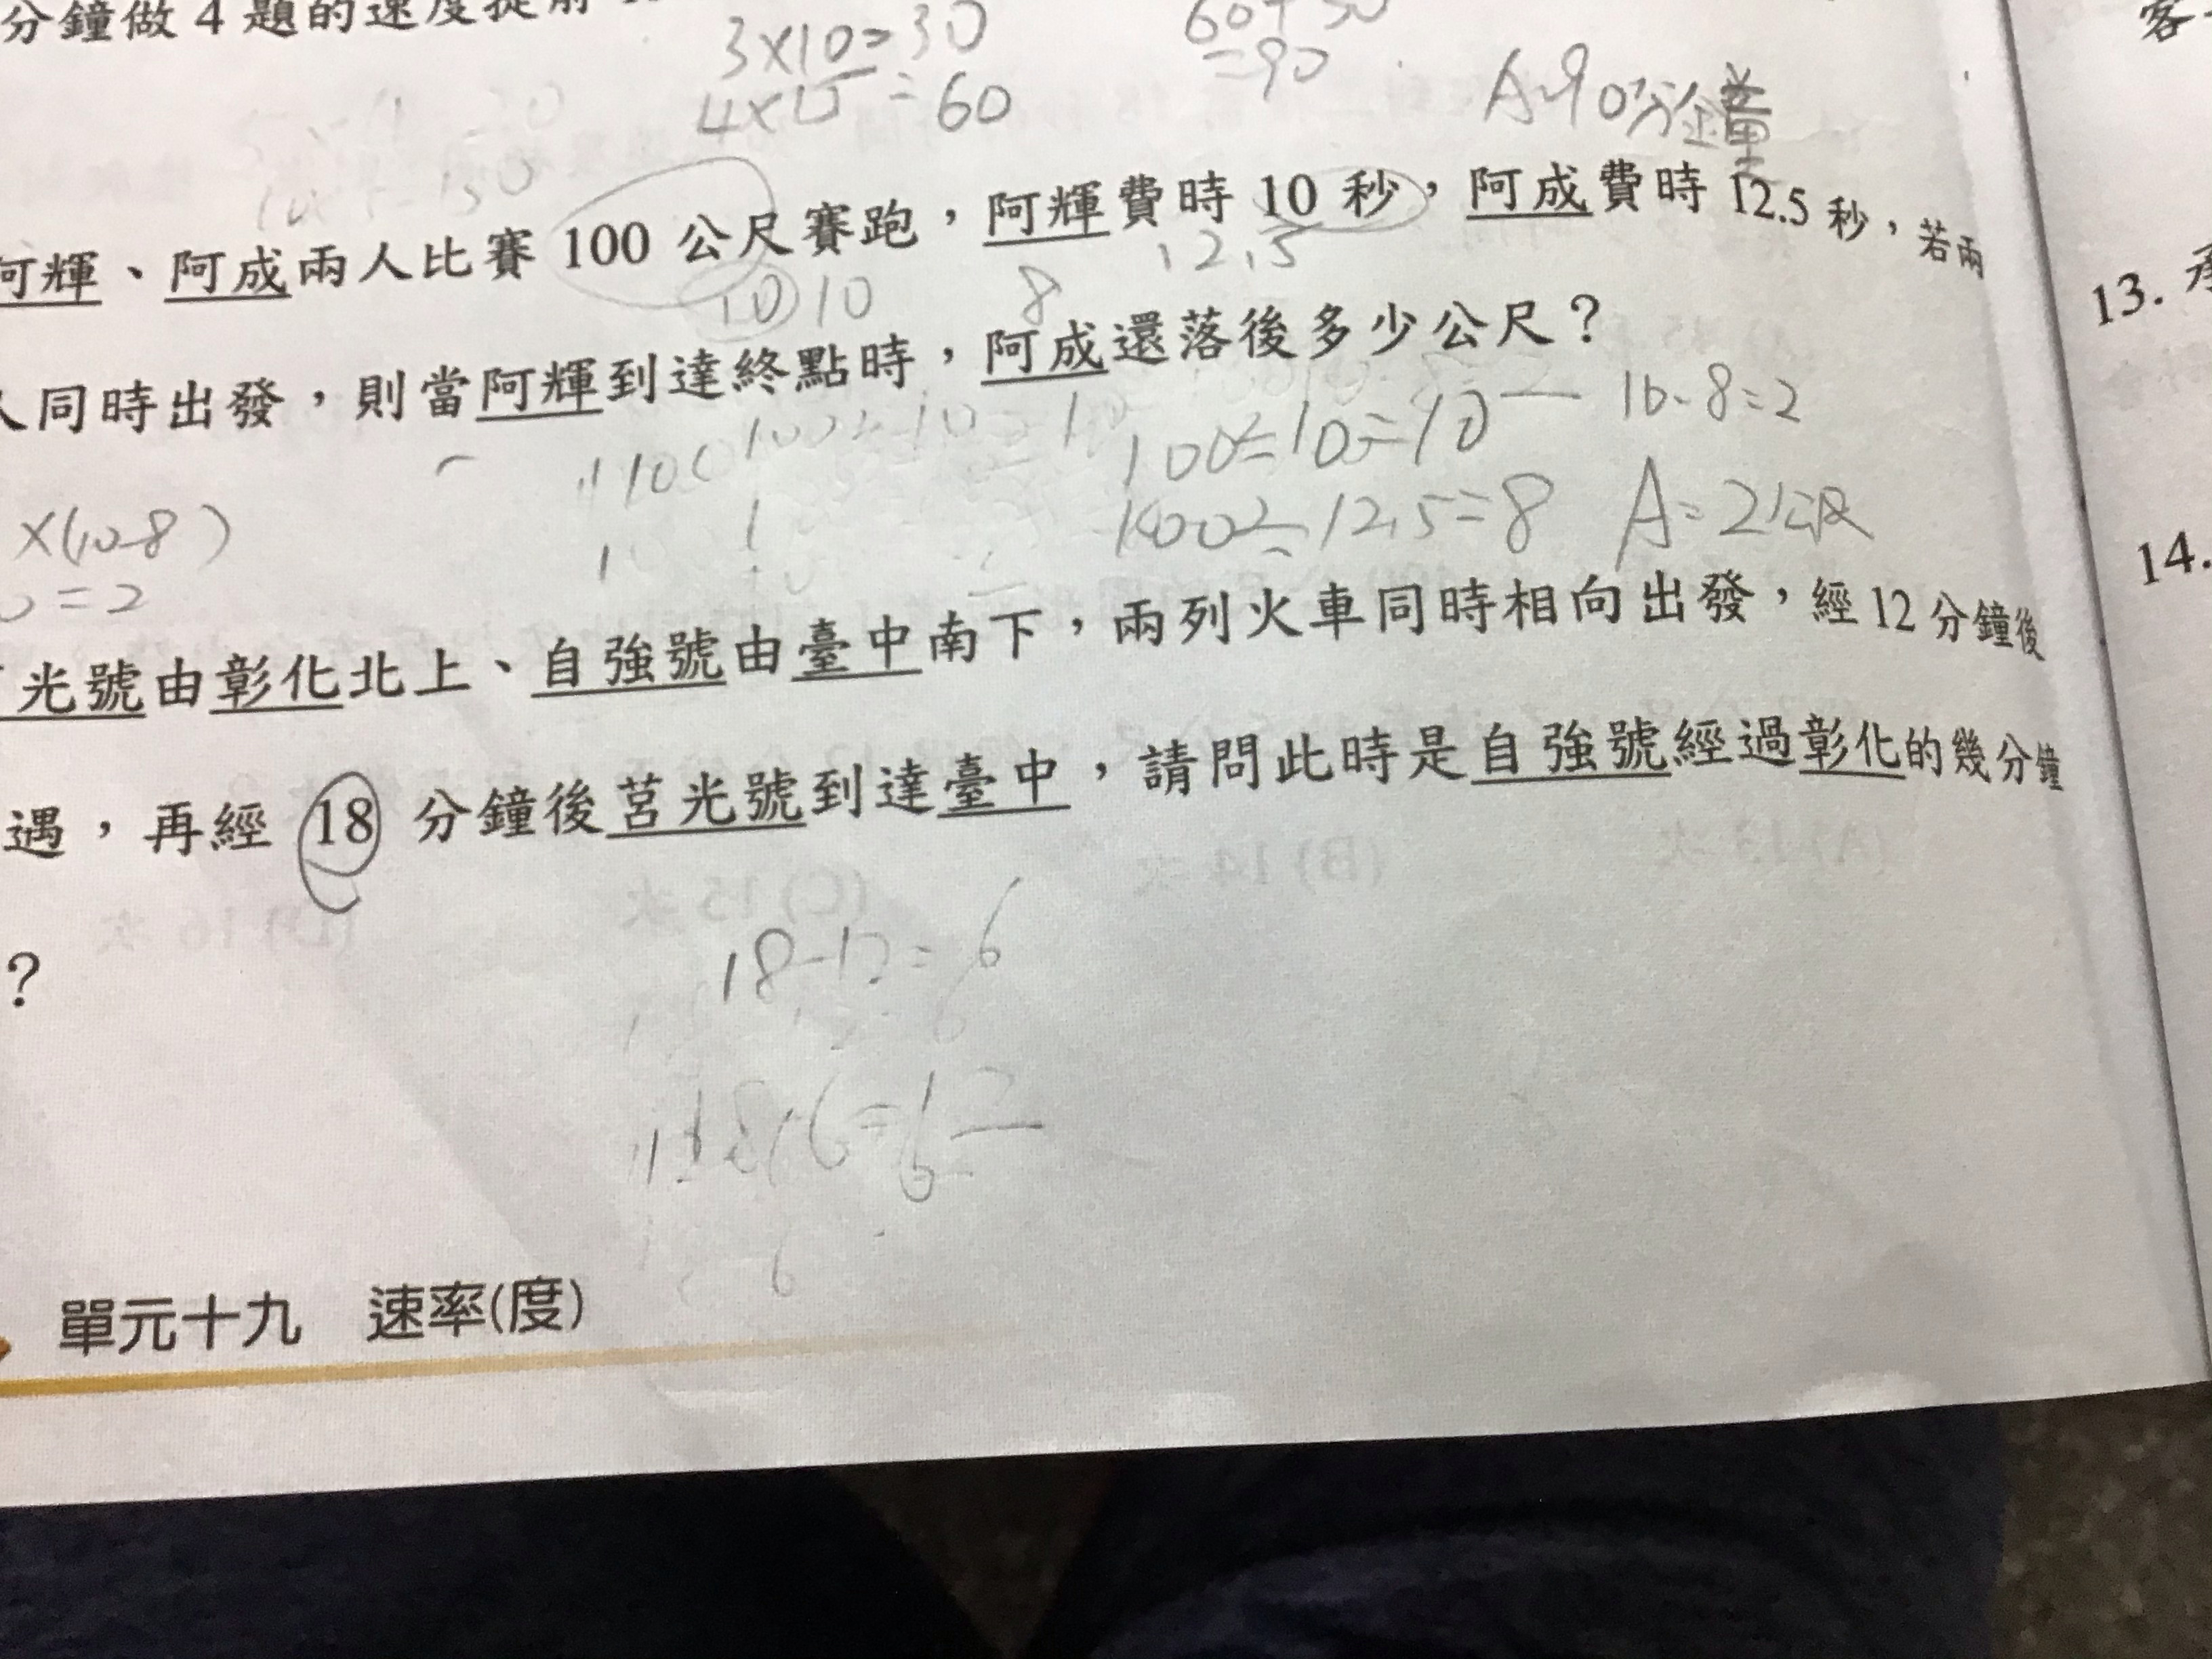 分鐘做4題的速度提前
3×10=30
4×15=60
60+30
=90
A=90分鐘
阿輝、阿成兩人比賽100公尺賽跑，阿輝費時10秒，阿成費時12.5秒，若兩
10 10 8 12.5
人同時出發，則當阿輝到達終點時，阿成還落後多少公尺？
100÷10=10
100÷12.5=8
10-8=2
A=2公尺
×(10-8)
=2
光號由彰化北上、自強號由臺中南下，兩列火車同時相向出發，經12分鐘後
遇，再經18分鐘後莒光號到達臺中，請問此時是自強號經過彰化的幾分鐘
？
18-12=6
單元十九 速率(度)
13.
14.